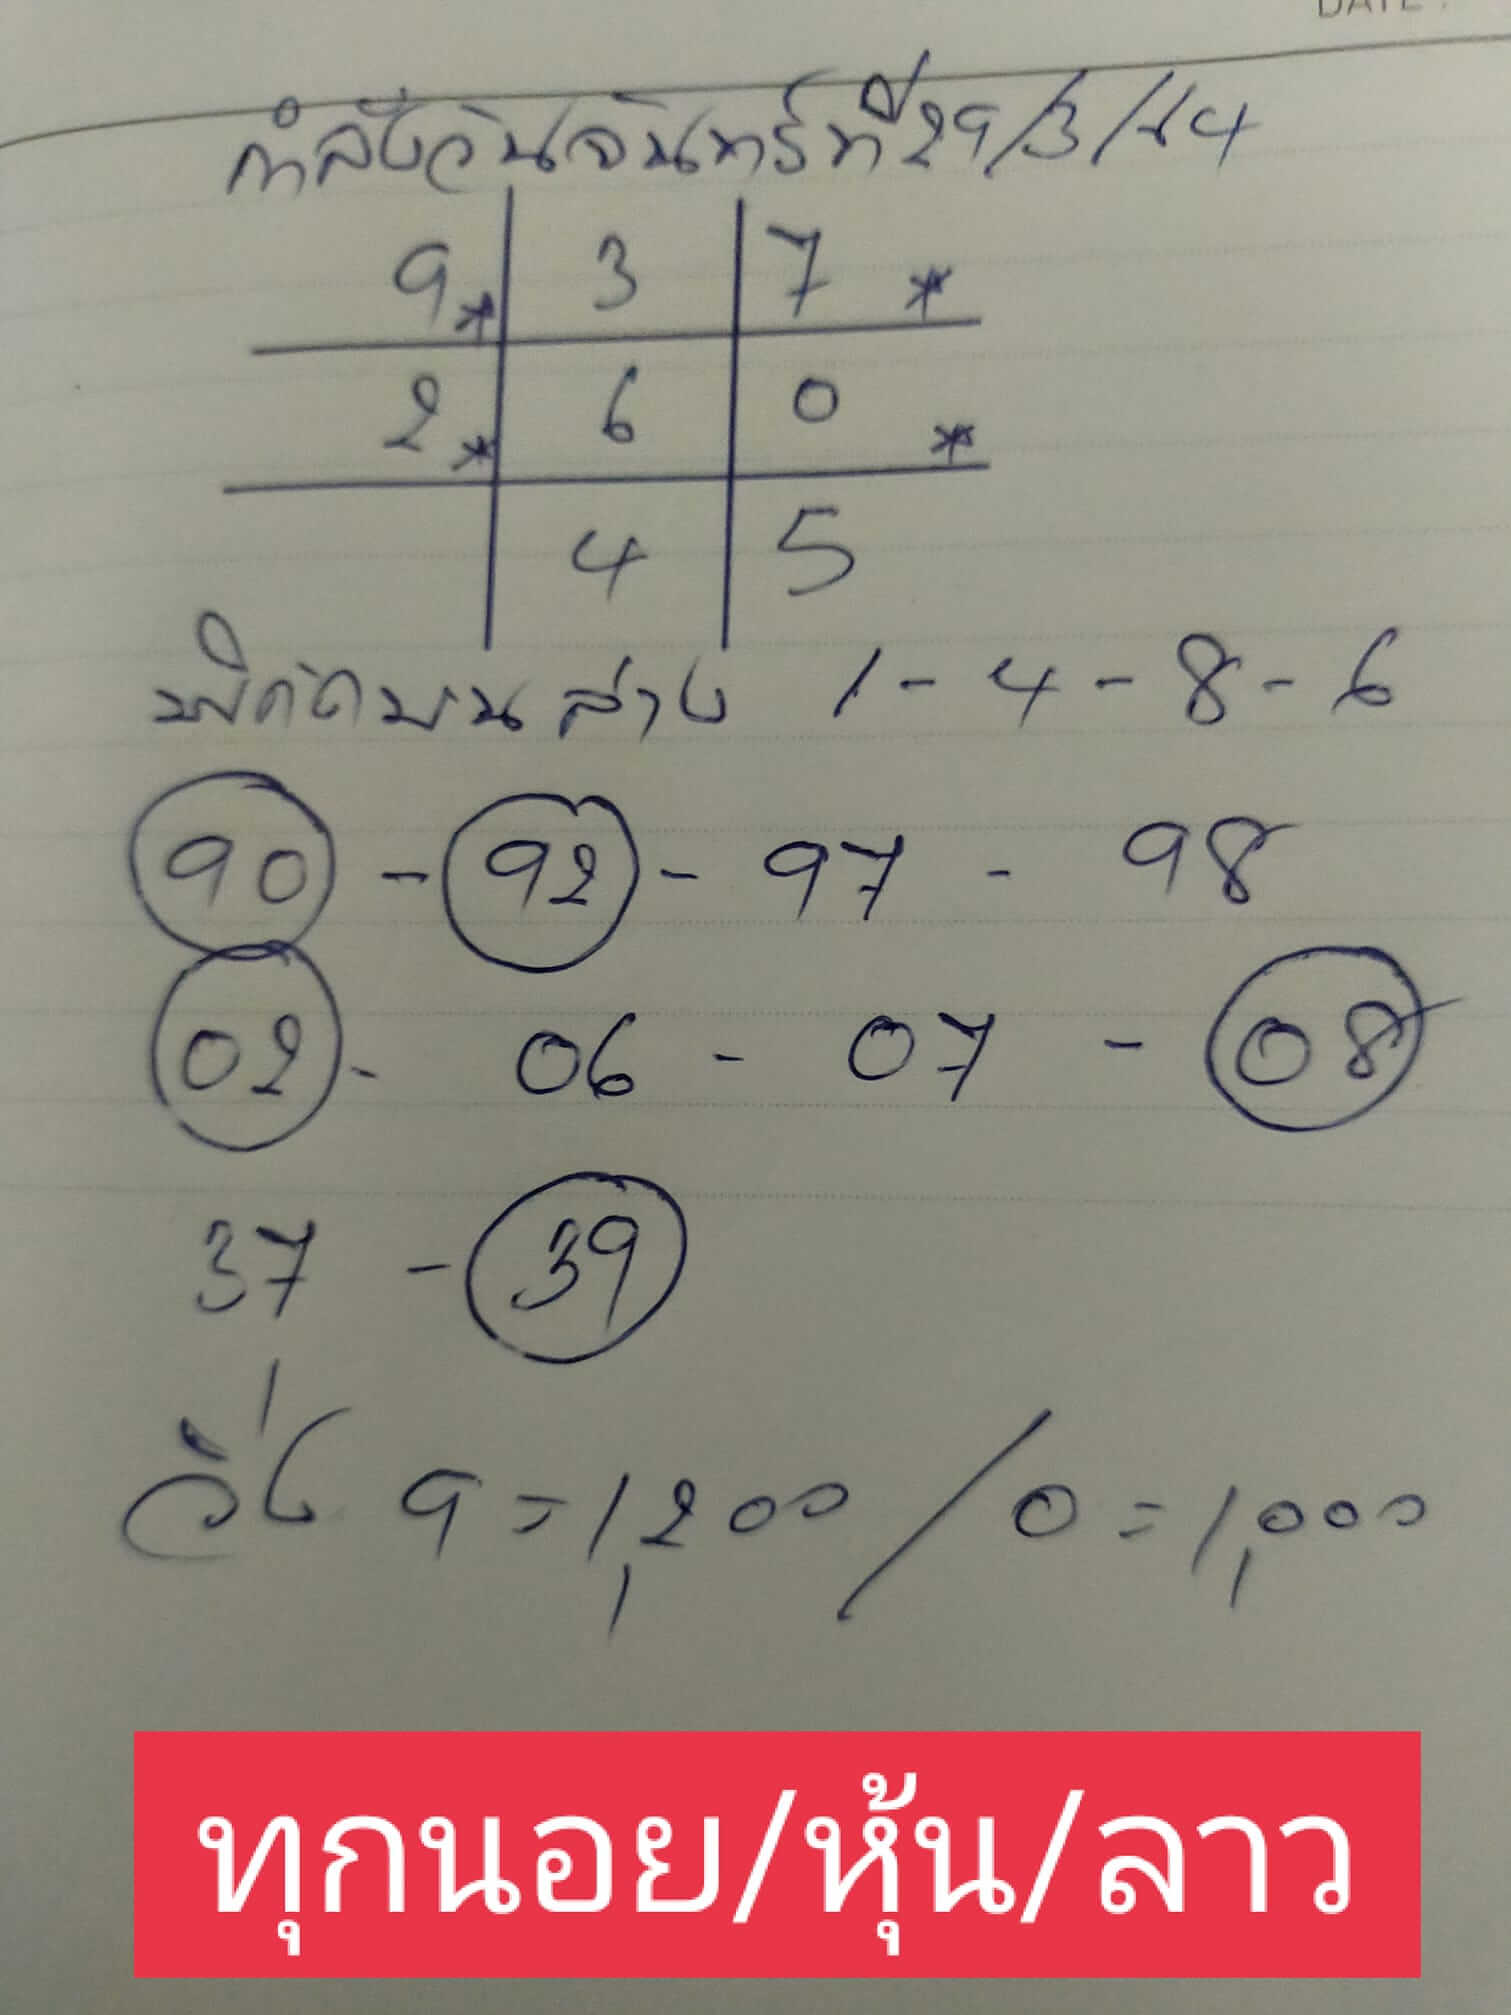 DATE :
กำลังวันจันทร์ที่ 29/3/64
9* 3 7 *
2* 6 0 *
4 5
พิกัดบน ล่าง 1 - 4 - 8 - 6
90 - 92 - 97 - 98
02 - 06 - 07 - 08
37 - 39
วิ่ง 9 = 1,200 / 0 = 1,000
ทุกนอย/หุ้น/ลาว